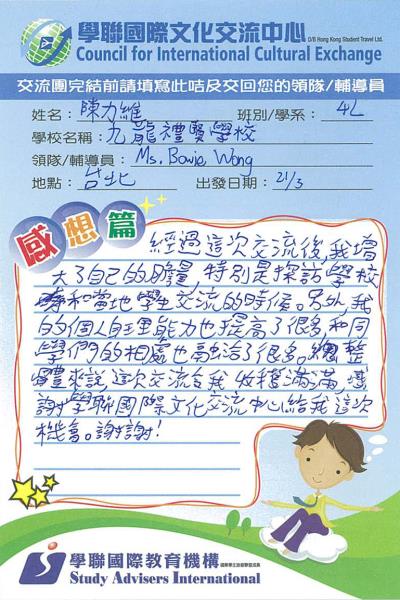 學聯國際文化交流中心 D/B Hong Kong Student Travel Ltd.
Council for International Cultural Exchange
交流團完結前請填寫此咭及交回您的領隊/輔導員
姓名：陳力維 班別/學系：4L
學校名稱：九龍禮賢學校
領隊/輔導員：Ms. Bowie Wong
地點：台北 出發日期：21/3
感想篇
經過這次交流後,我增
大了自己的膽量,特別是探訪學校
和當地學生交流的時候。另外,我
的個人自理能力也提高了很多,和同
學們的相處也融洽了很多。總整
體來說,這次交流令我收穫滿滿,感
謝學聯國際文化交流中心給我這次
機會。謝謝!
學聯國際教育機構
Study Advisers International